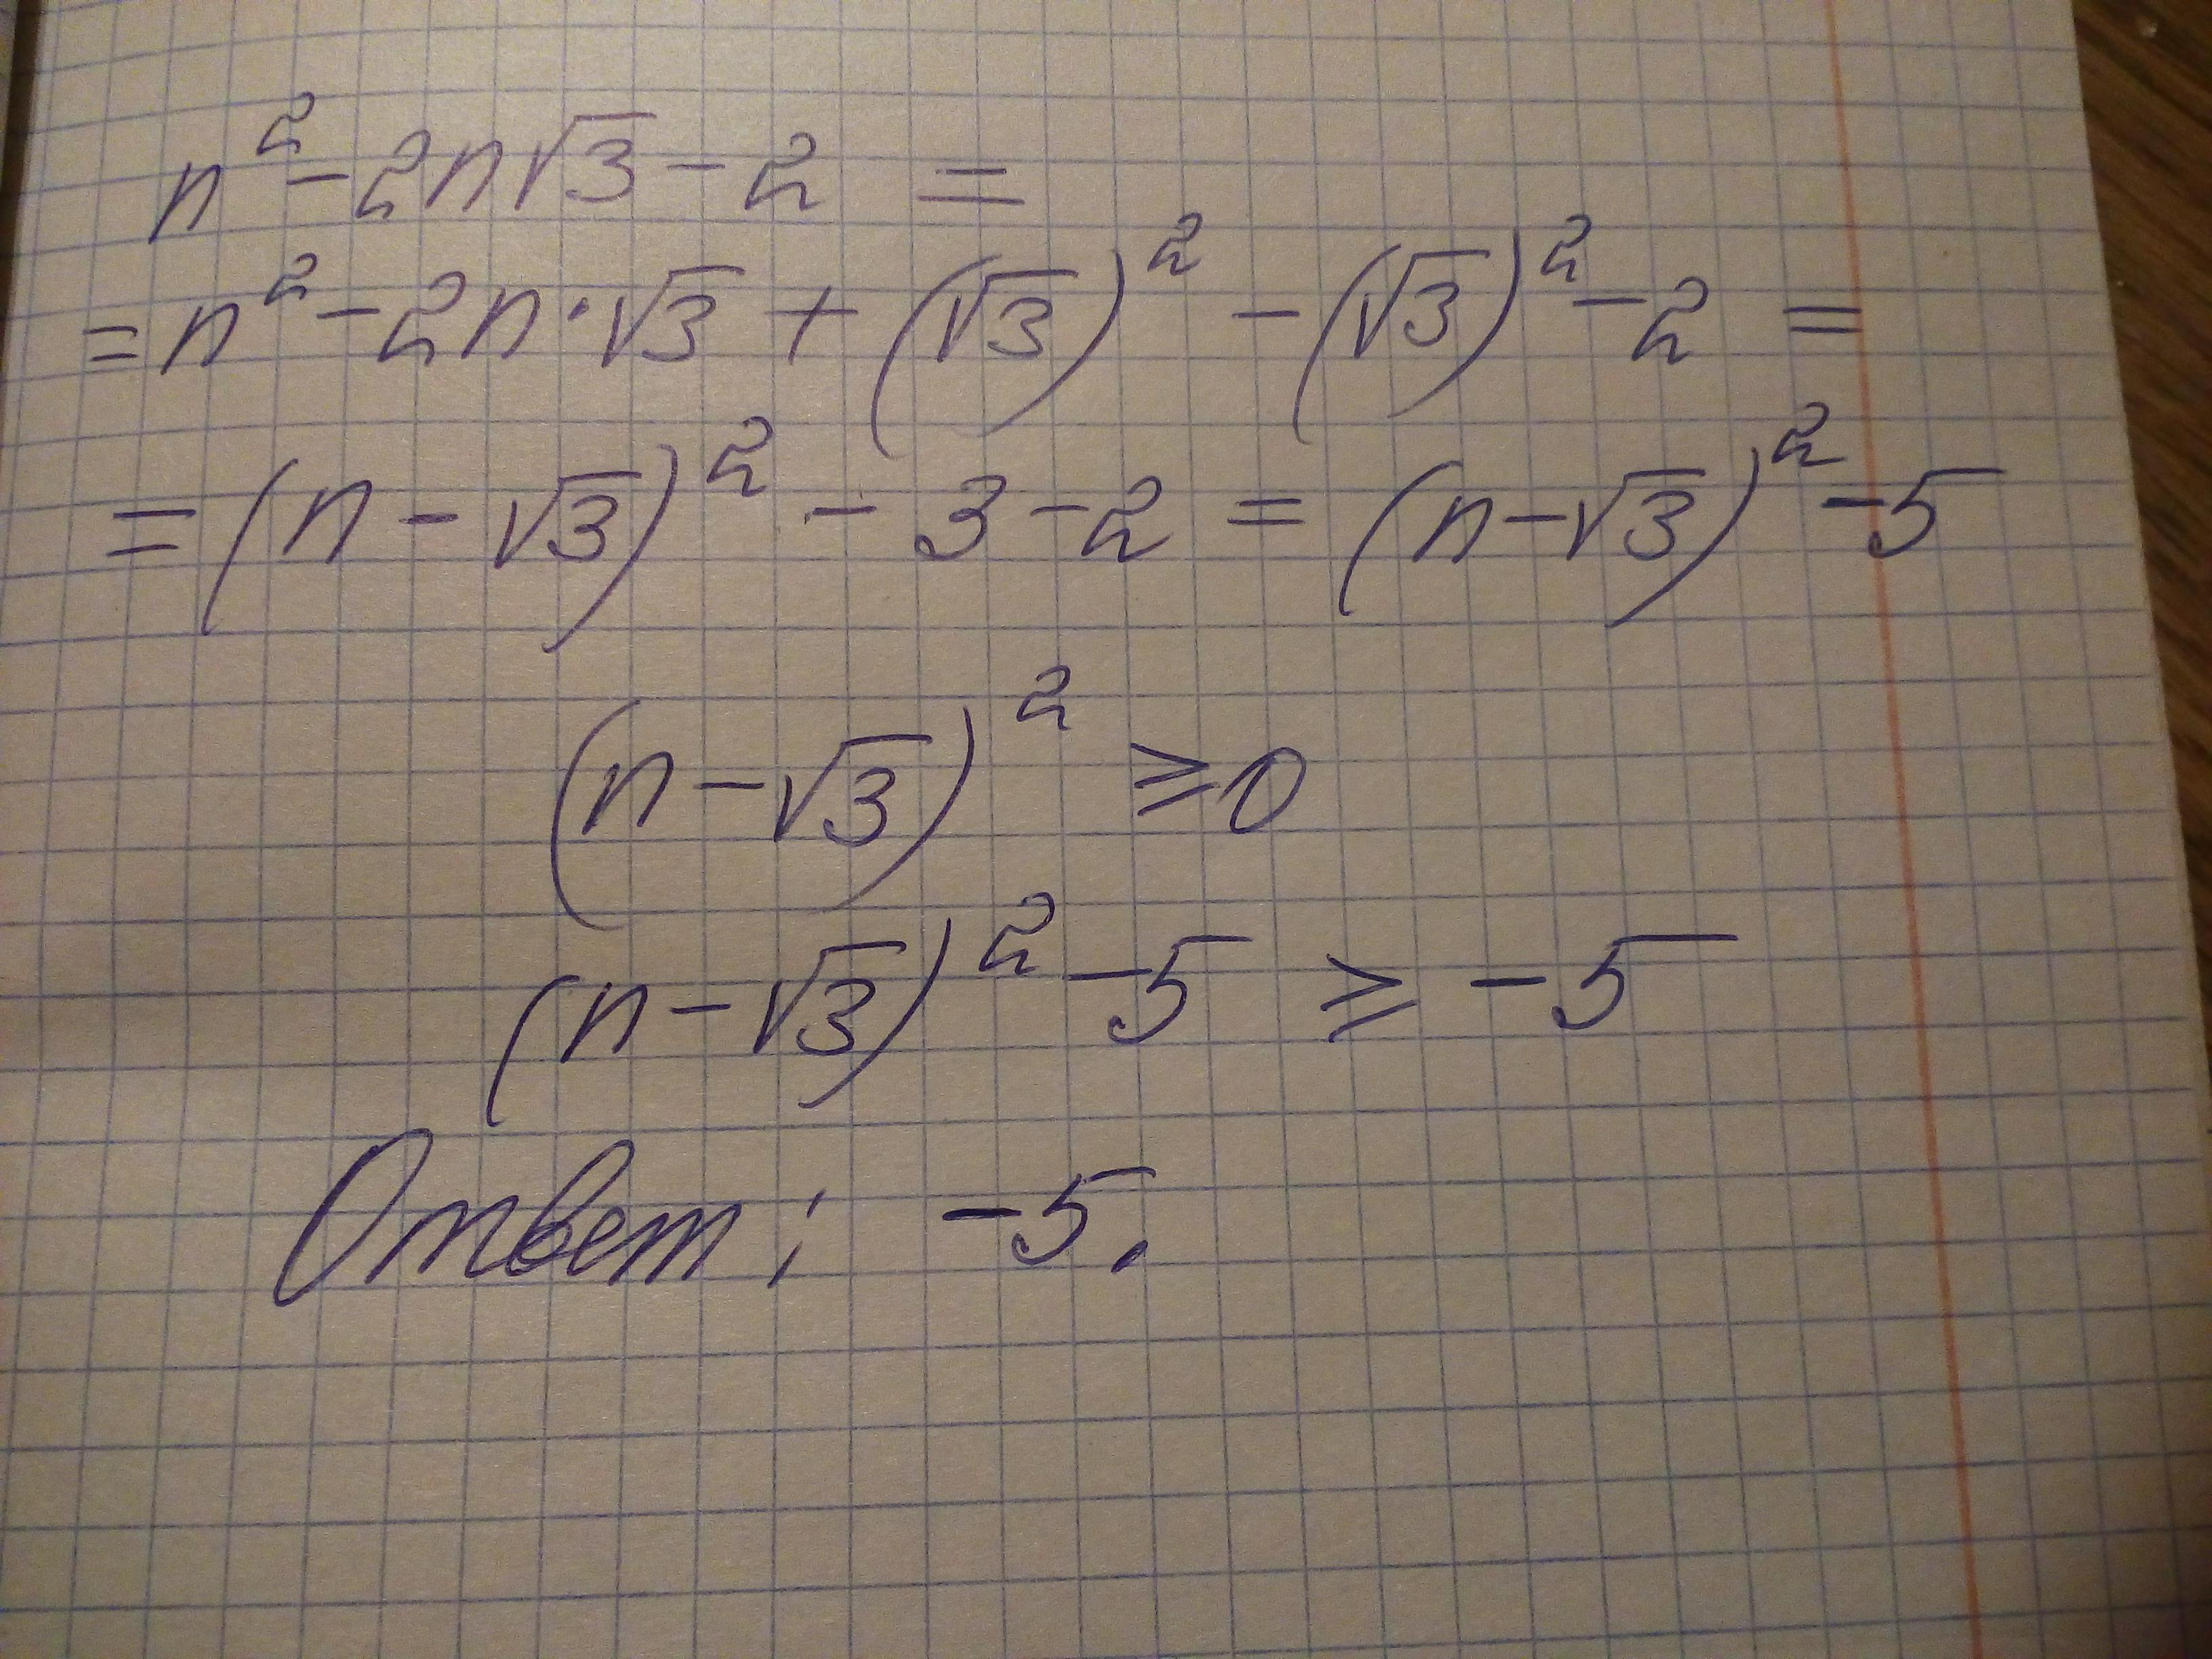 n² - 2n√3 - 2 =
= n² - 2n·√3 + (√3)² - (√3)² - 2 =
= (n - √3)² - 3 - 2 = (n - √3)² - 5
(n - √3)² ⩾ 0
(n - √3)² - 5 ⩾ - 5
Ответ: -5.